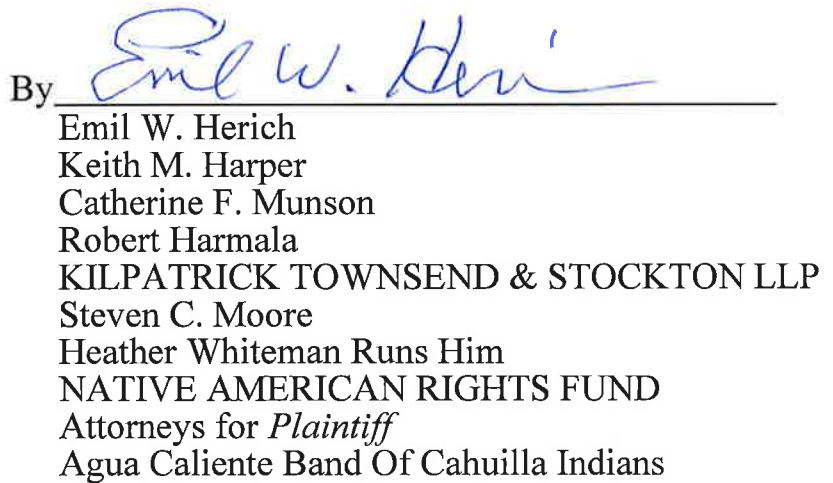 By Emil W. Heri
Emil W. Herich
Keith M. Harper
Catherine F. Munson
Robert Harmala
KILPATRICK TOWNSEND & STOCKTON LLP
Steven C. Moore
Heather Whiteman Runs Him
NATIVE AMERICAN RIGHTS FUND
Attorneys for Plaintiff
Agua Caliente Band Of Cahuilla Indians